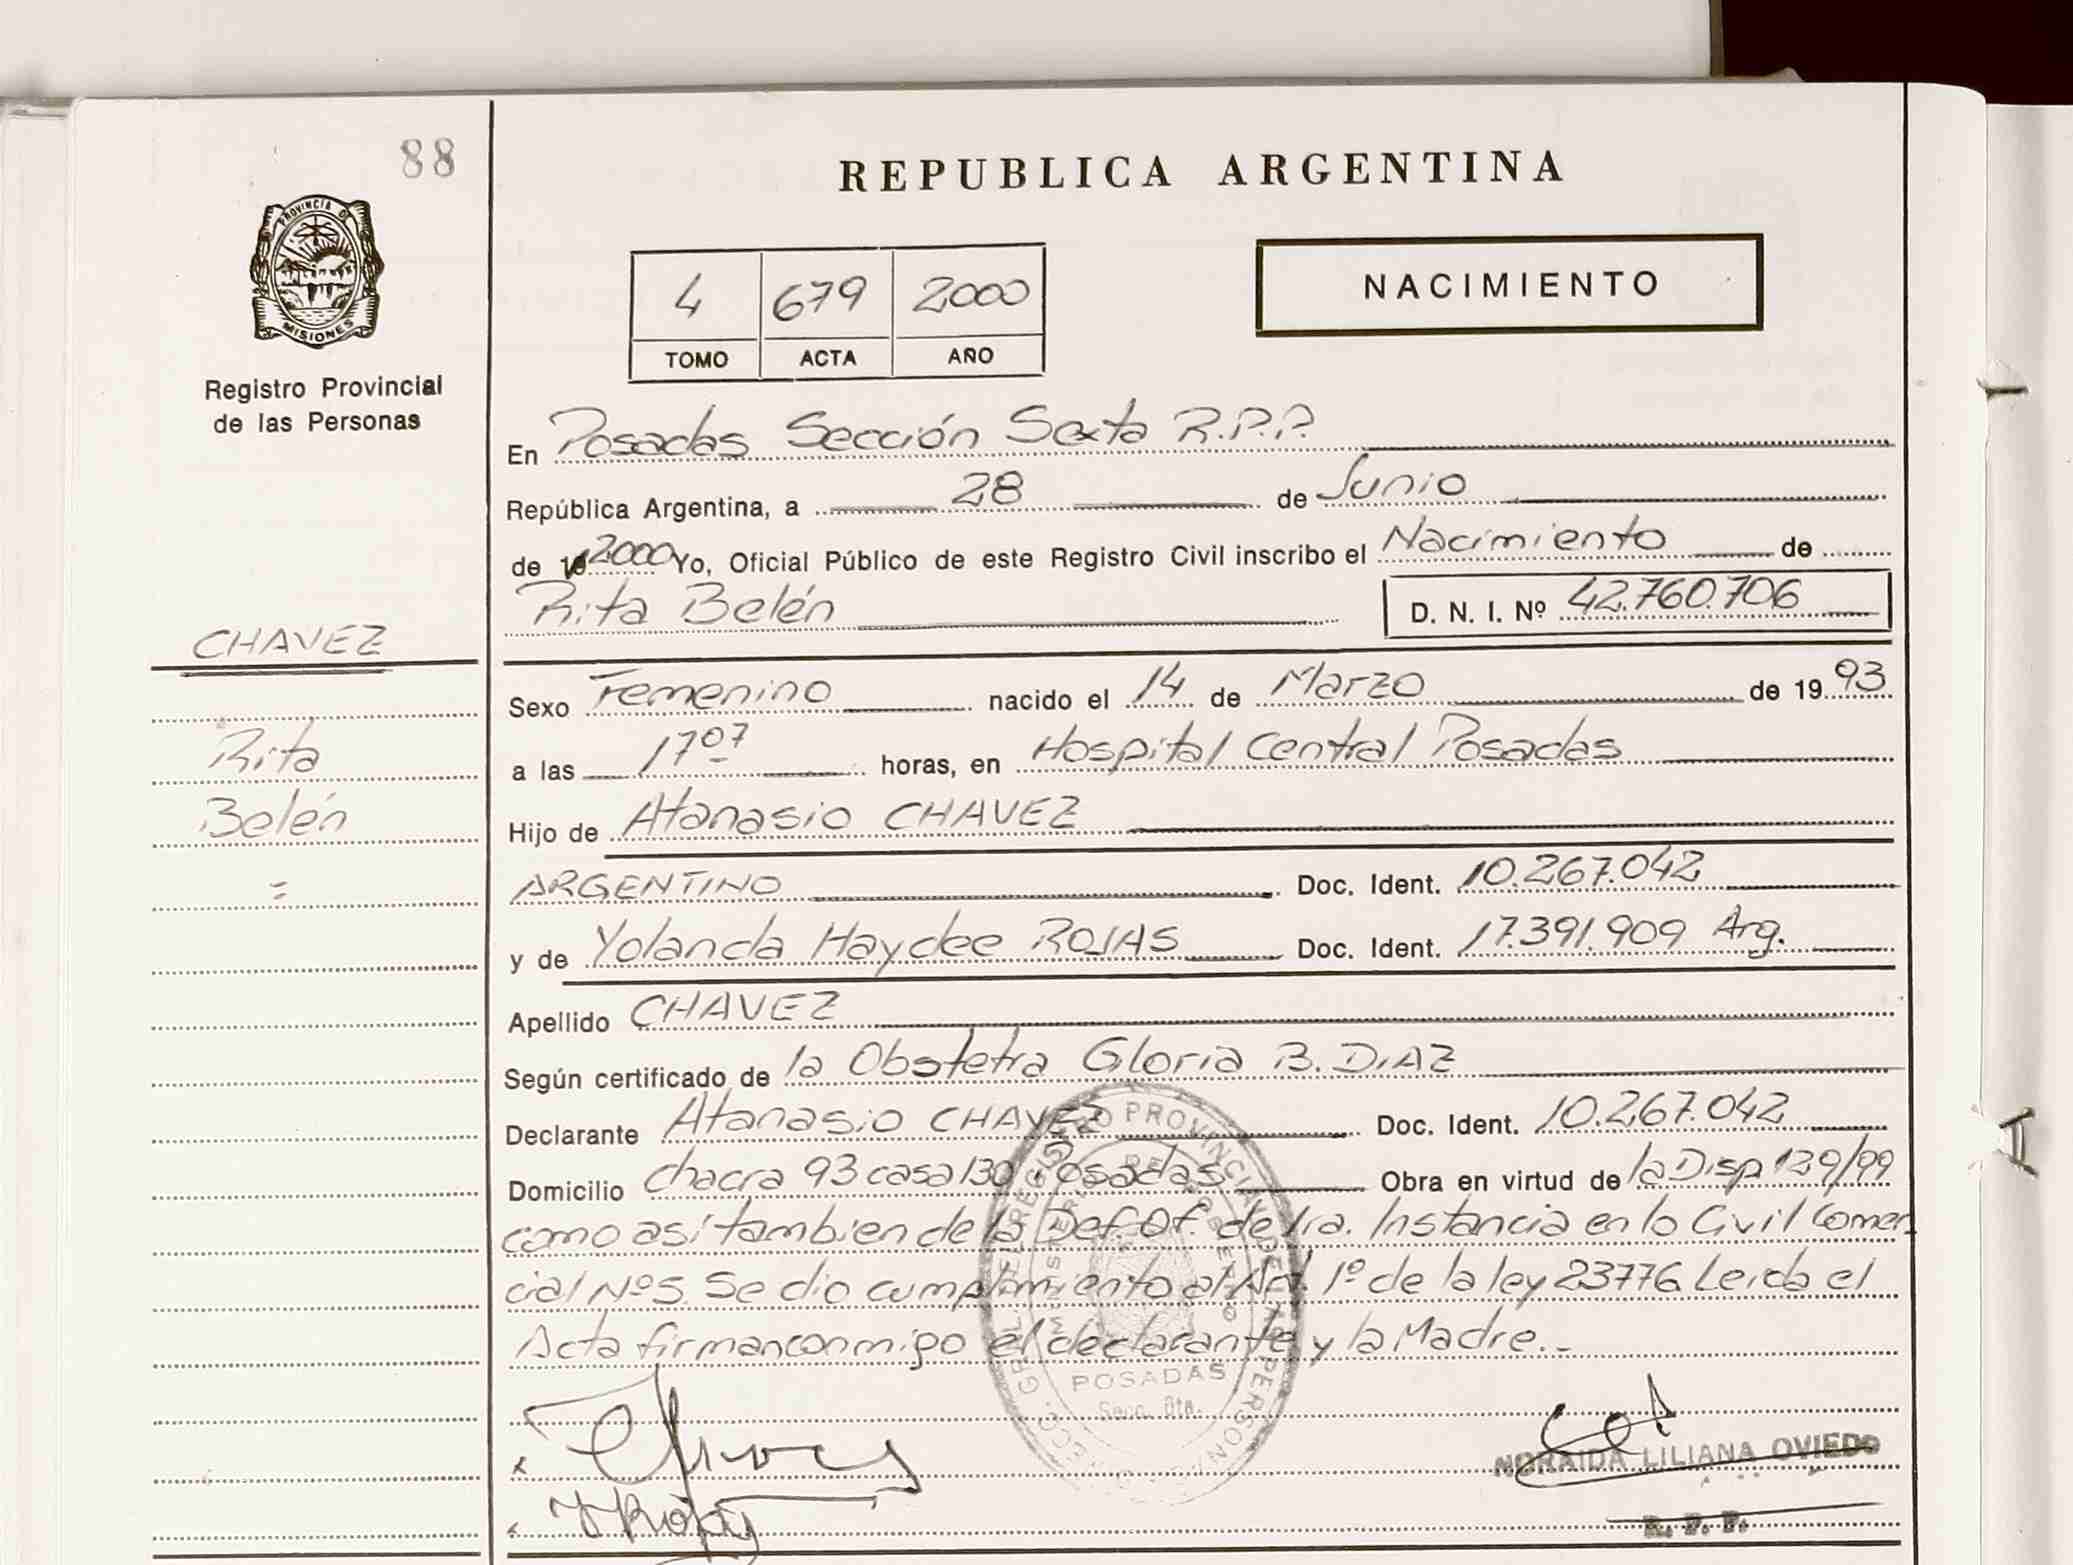 88
REPUBLICA ARGENTINA
PROVINCIA DE
MISIONES
Registro Provincial
de las Personas
4 679 2000
TOMO ACTA AÑO
NACIMIENTO
En Posadas Sección Sexta R.P.P.
República Argentina, a 28 de Junio
de 2000 Yo, Oficial Público de este Registro Civil inscribo el Nacimiento de
Rita Belén D. N. I. Nº 42.760.706
CHAVEZ
Rita
Belén
=
Sexo Femenino nacido el 14 de Marzo de 1993
a las 17 07 horas, en Hospital Central Posadas
Hijo de Atanasio CHAVEZ
ARGENTINO Doc. Ident. 10.267.042
y de Yolanda Haydee ROJAS Doc. Ident. 17.391.909 Arg.
Apellido CHAVEZ
Según certificado de la Obstetra Gloria B. DIAZ
Declarante Atanasio CHAVEZ Doc. Ident. 10.267.042
Domicilio Chacra 93 casa 130 Posadas Obra en virtud de la Disp 139/99
como así tambien de la Def. Of. de 1ra. Instancia en lo Civil Comer
cial Nº5. Se dio cumplimiento al Art. 1º de la ley 23776 Leida el
Acta firman conmigo el declarante y la Madre.-
REGISTRO PROVINCIAL DE LAS PERSONAS
POSADAS
Secc. 6ta.
NORAIDA LILIANA OVIEDO
R. P. P.